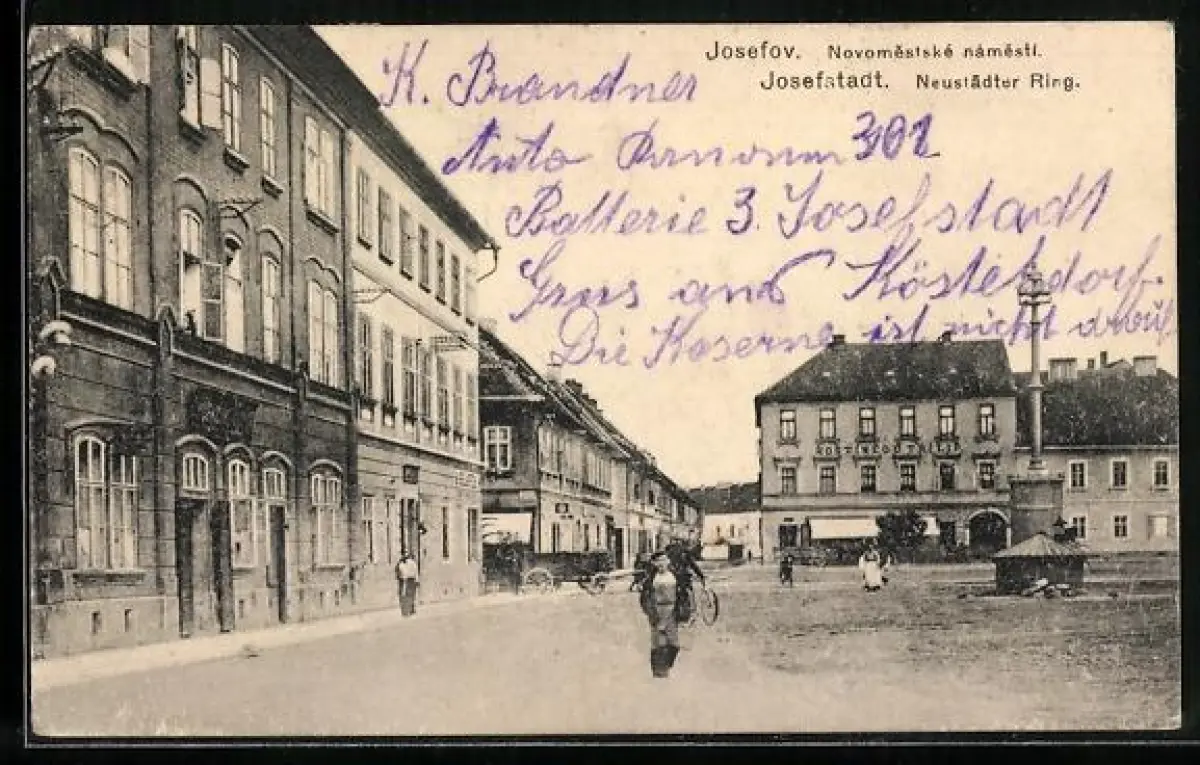 Josefov. Novoměstské náměstí.
Josefstadt. Neustädter Ring.
K. Brandner
Auto 302
Batterie 3. Josefstadt
Gruss aus Köstelsdorf.
Die Kaserne ist nicht drauf